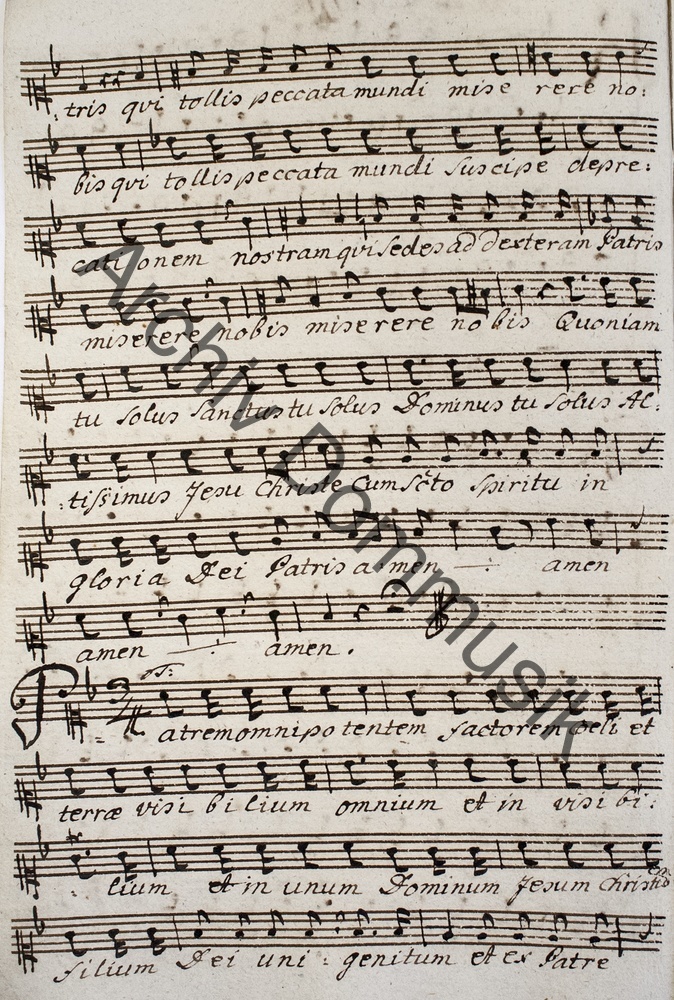 : tris qui tollis peccata mundi mise rere no:
bis qui tollis peccata mundi suscipe depre:
cationem nostram qui sedes ad dexteram Patris
miserere nobis miserere nobis Quoniam
tu solus sanctus tu solus Dominus tu solus Al:
: tissimus Jesu Christe Cum Scto Spiritu in
gloria Dei Patris a: men amen
amen amen.
Patrem omnipotentem factorem Coeli et
terræ visi bilium omnium et in visi bi:
lium et in unum Dominum Jesum Christū
filium Dei uni: genitum et ex Patre
Archiv Dommusik